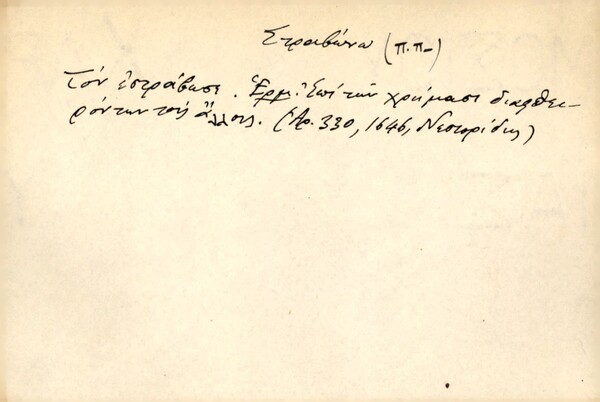 Στραβώνω (π.π-)
Τὸν ἐστράβωσε. Ἑρμ. Ἐπὶ τῶν χρήμασι διαφθει-
ρόντων τοὺς ἄλλους. (Ἀρ. 330, 1646, Νεστορίδης)